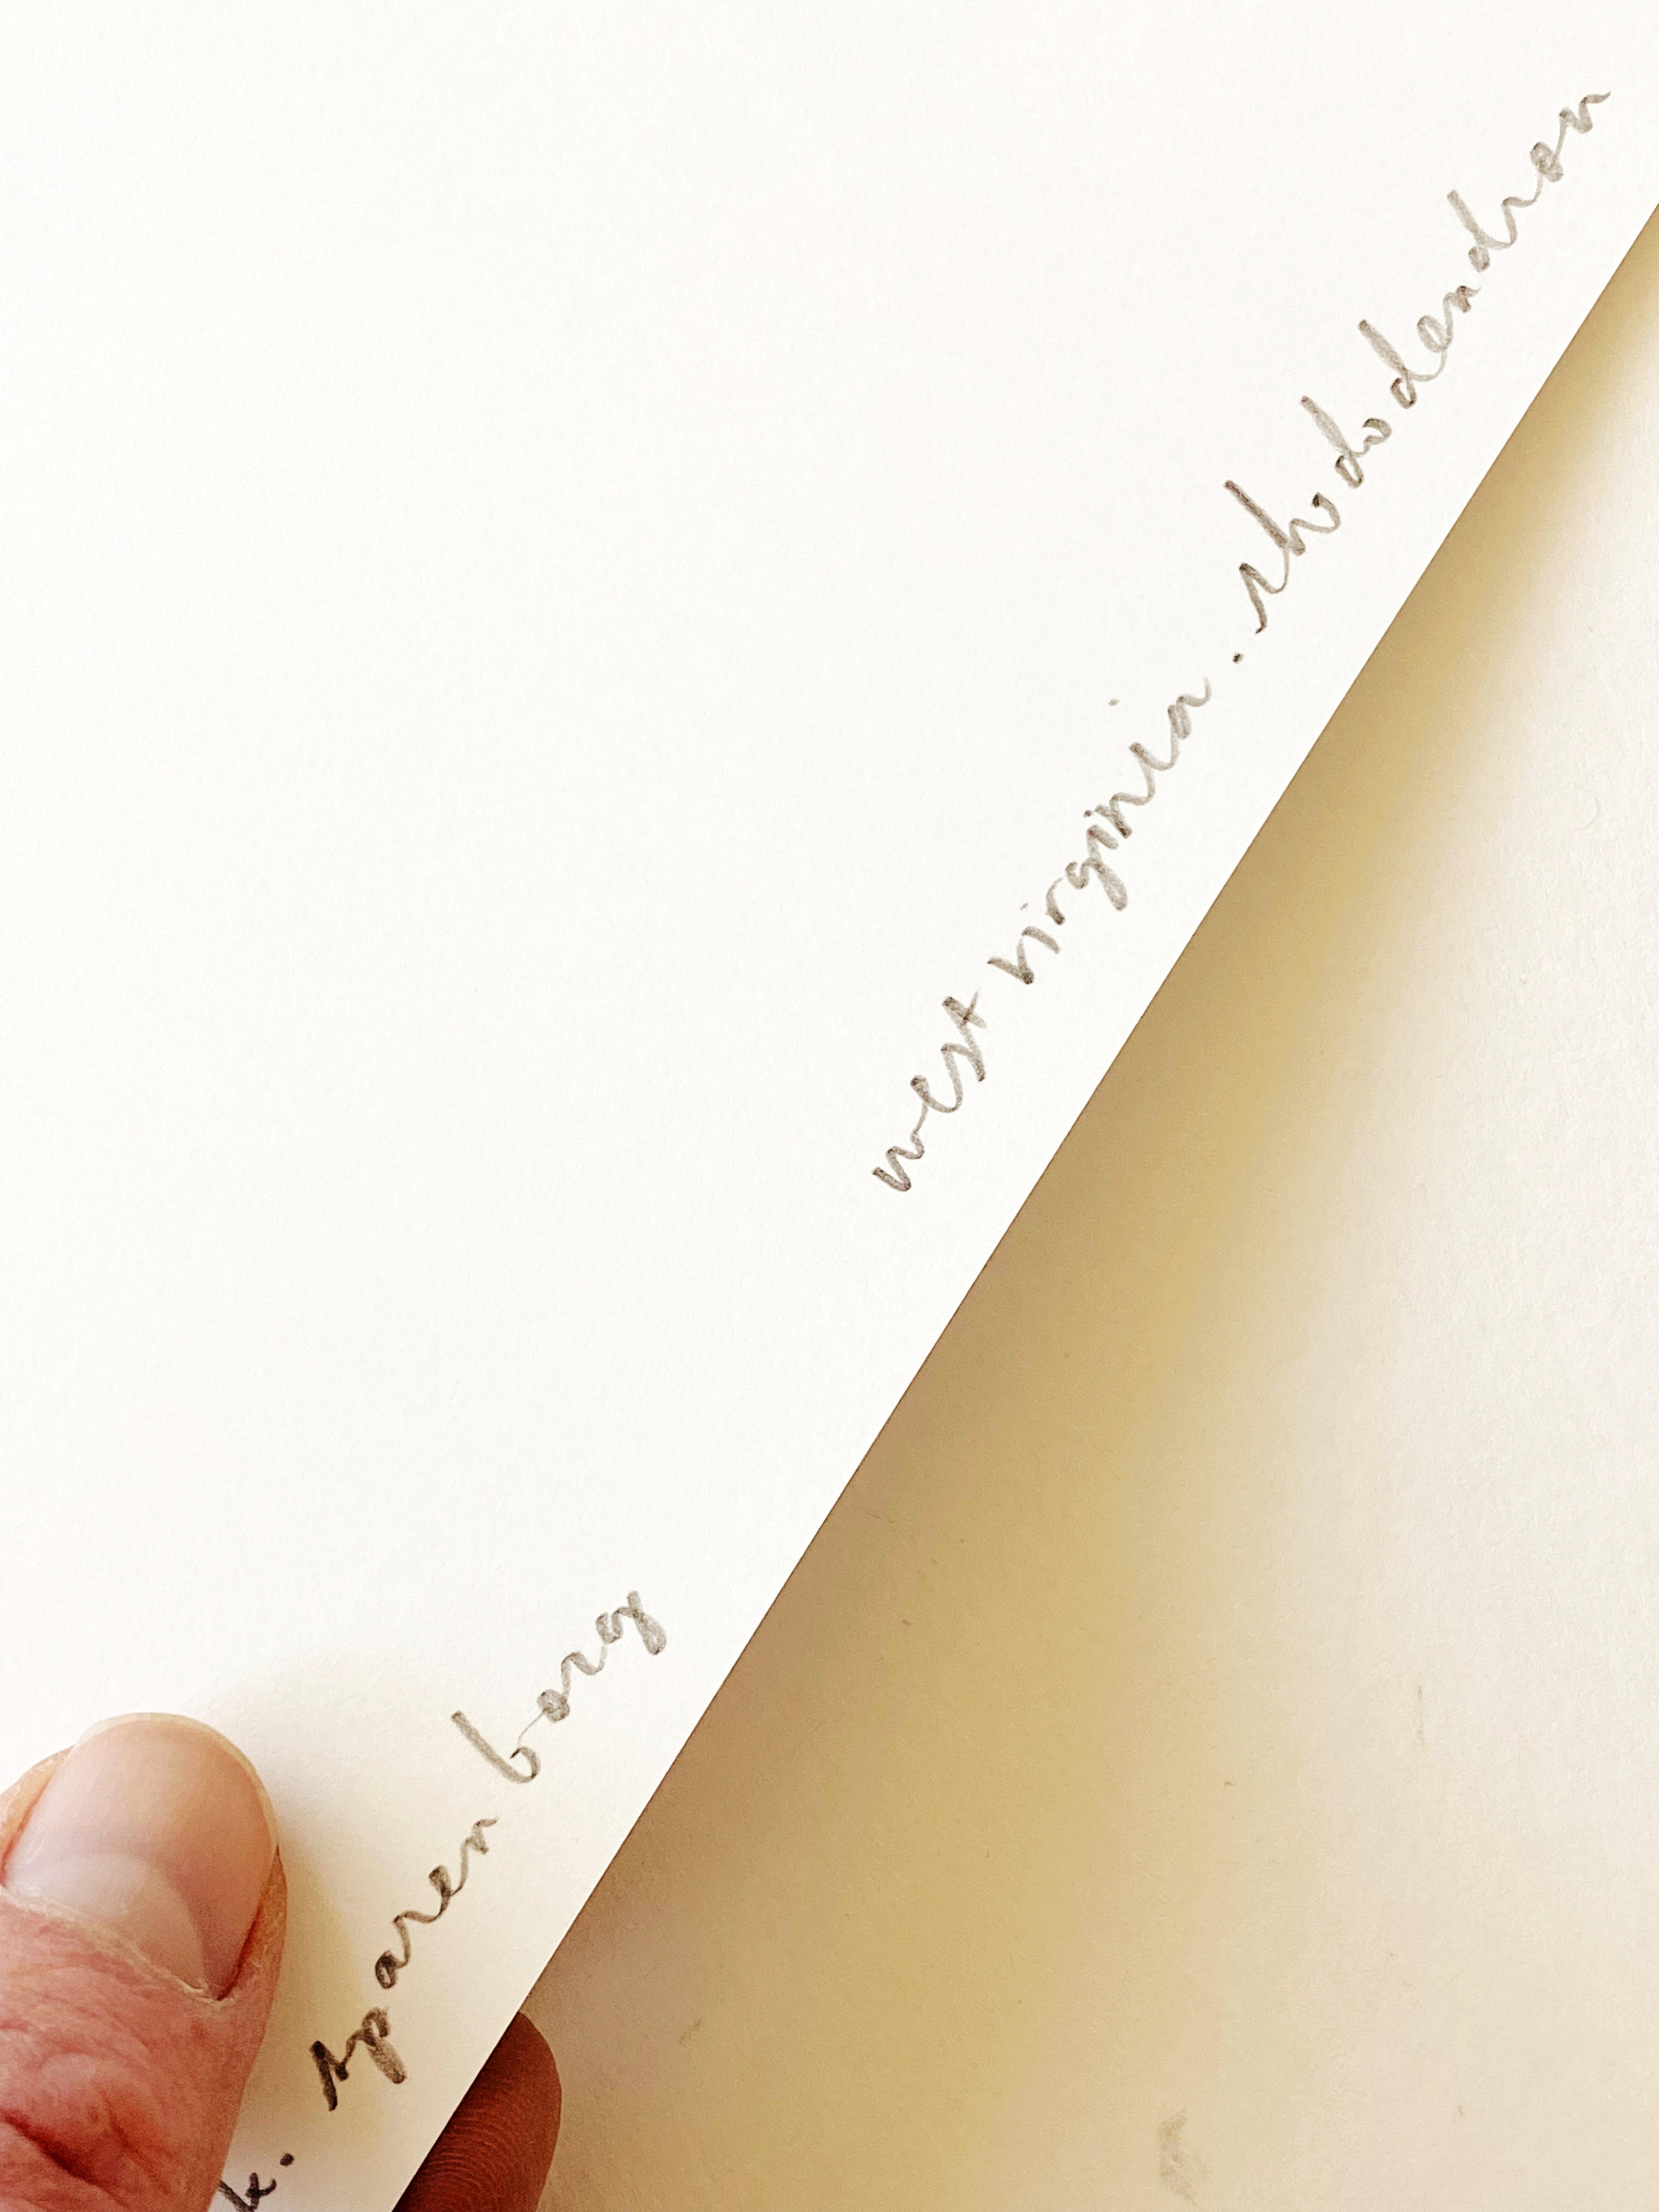 sparen borg
west virginia . rhododendron